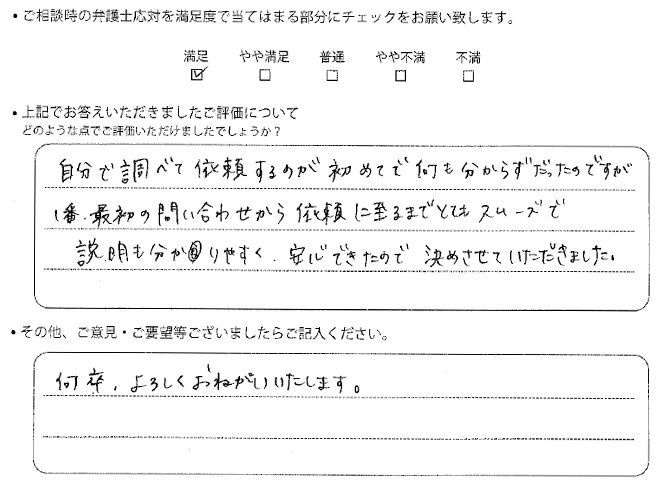 ・ご相談時の弁護士応対を満足度で当てはまる部分にチェックをお願い致します。
満足 やや満足 普通 やや不満 不満
☑ □ □ □ □
・上記でお答えいただきましたご評価について
どのような点でご評価いただけましたでしょうか？
自分で調べて依頼するのが初めてで何も分からずだったのですが
1番、最初の問い合わせから依頼に至るまでとてもスムーズで
説明も分かりやすく、安心できたので決めさせていただきました。
・その他、ご意見・ご要望等ございましたらご記入ください。
何卒、よろしくおねがいいたします。